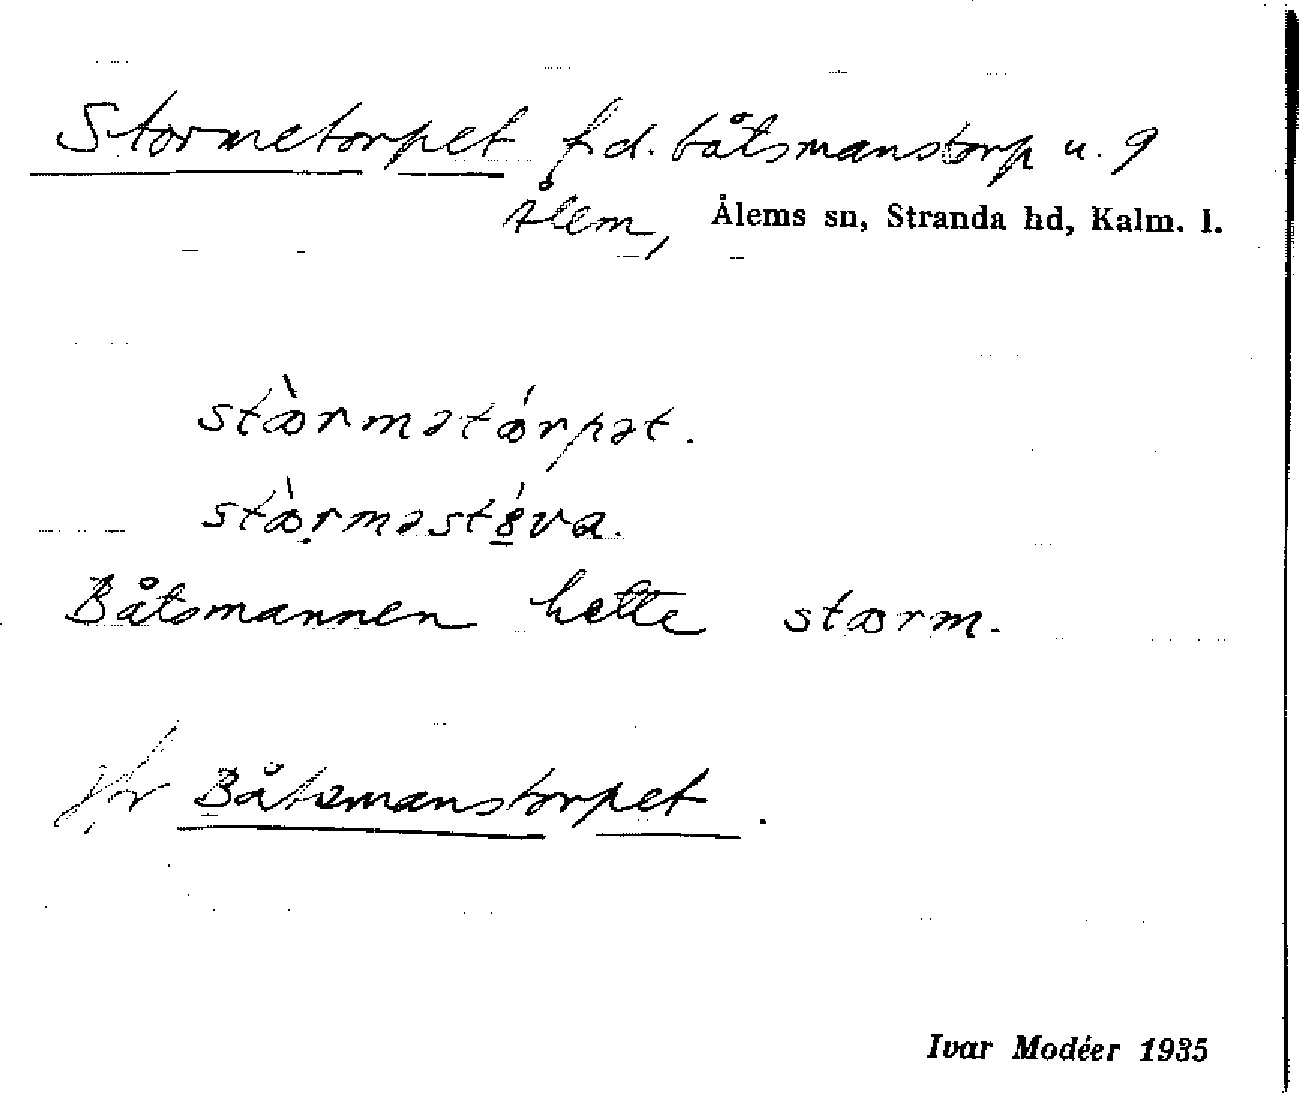 Stormetorpet f.d. båtsmanstorp u. 9
Ålem, Ålems sn, Stranda hd, Kalm. l.
stæ̀rmətǽrpət.
stæ̀rməst8́va.
Båtsmannen hette stærm.
jfr Båtsmanstorpet.
Ivar Modéer 1935